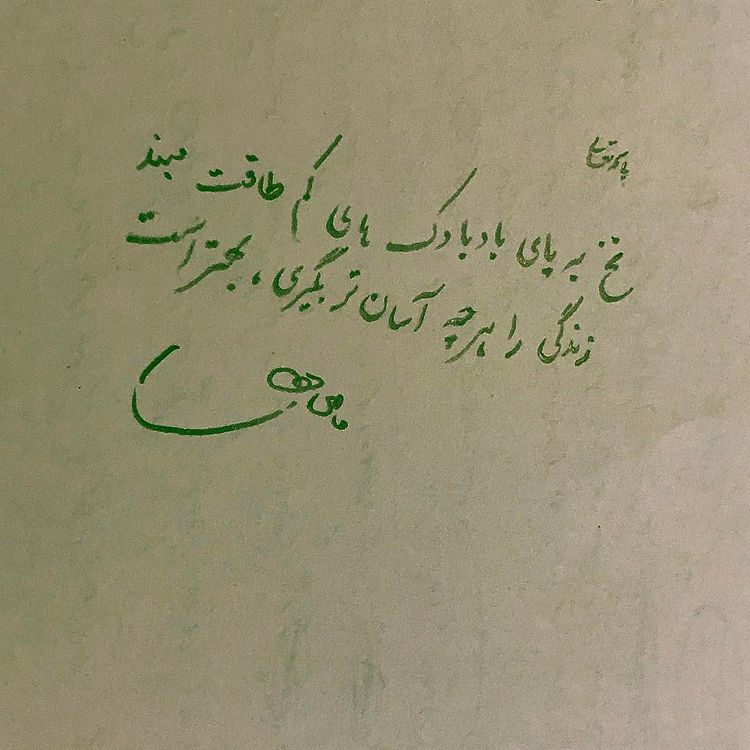 نخ به پای بادبادک های کم طاقت مبند
زندگی را هرچه آسان تر بگیری، بهتر است